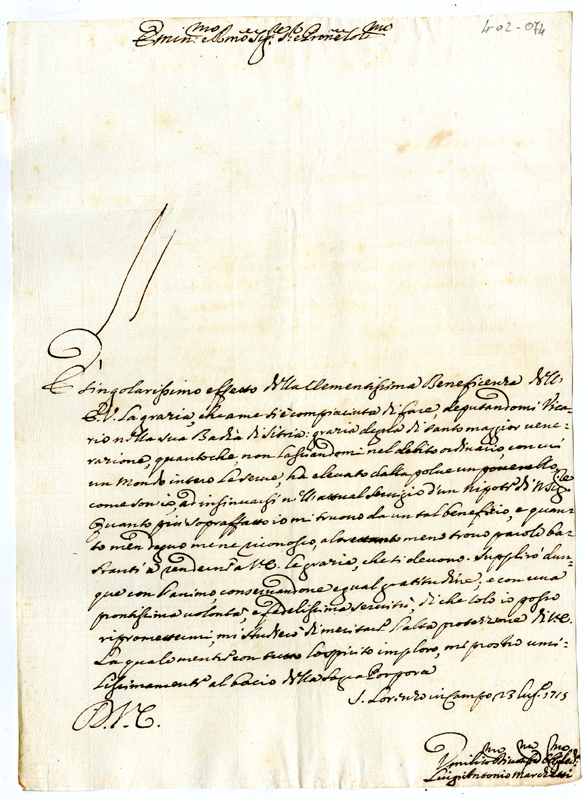 4-02-074
Emin.mo e Rmo Sig.re Sig.re e Prone Col.mo
È singolarissimo effetto della Clementissima Beneficenza dell'
E.V. la grazia, che a me si è compiaciuta di fare, deputandomi Vica-
rio nella sua Badia di Sitria: grazia degna di tanto maggior vene-
razione, quanto che, non lasciandomi nel debito ordinario, con cui
un Mondo intero la serve, ha elevato dalla polve un poverello,
come son io, ad insinuarsi nell'attual servigio d'un Nipote di N. Sig.re
Quanto più sopraffatto io mi truovo da un tal beneficio, e quan-
to men degno me ne riconosco, altrettanto meno truovo parole ba-
stanti à rendern'a V.E. le grazie, che si devono. Supplirò dun-
que con l'animo conservandone egual gratitudine; e con una
prontissima volontà, e fedelissima servitù, di che solo io posso
ripromettermi, mi studierò di meritare l'alta protezione di V.E.
La qualmente con tutto lo spirito imploro, mi prostro umi-
lissimamente al bacio della Sagra Porpora
S. Lorenzo in Campo 23 lug.o 1715
D.V.E.
Umiliss.mo
Luigi Antonio